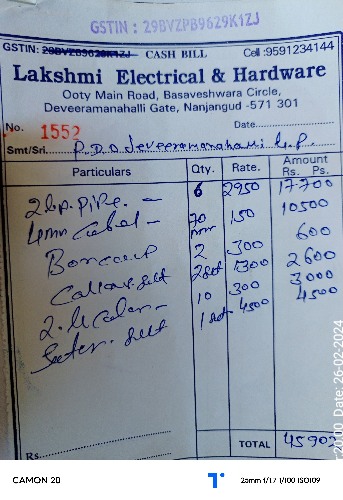 GSTIN : 29BVZPB9629K1ZJ
GSTIN: 29BVZPB9629K1ZJ CASH BILL Cell :9591234144
Lakshmi Electrical & Hardware
Ooty Main Road, Basaveshwara Circle,
Deveeramanahalli Gate, Nanjangud -571 301
No. 1552 Date
Smt/Sri. P.D.O Deveeramanahalli G.P.
Particulars Qty. Rate. Amount Rs. Ps.
pipe. - 6 2950 17700
4mm Cabel - 70 mm 150 10500
2 300 600
sett 2 set 1300 2600
2. 10 300 3000
sett 1 set 4500 4500
Rs. TOTAL 45902
CAMON 20
25mm f/1.7 1/100 ISO109
Date: 26-02-2024